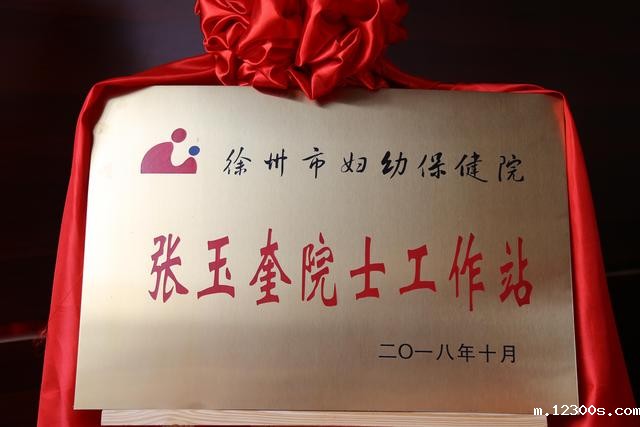 徐州市妇幼保健院
张玉奎院士工作站
二〇一八年十月
m.12300s.com